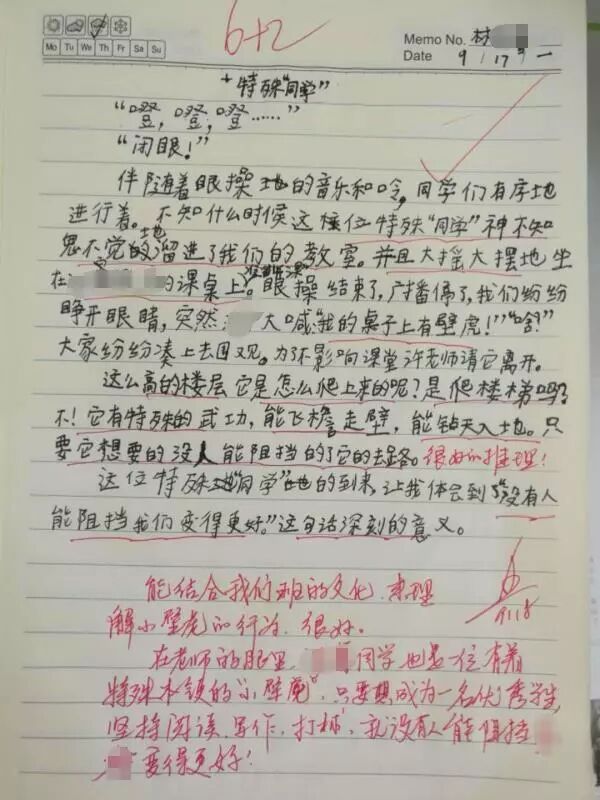 6+2
Mo Tu We Th Fr Sa Su
Memo No. 林
Date 9/17 一
特殊“同学”
“噔，噔，噔……”
“闭眼！”
伴随着眼操地的音乐和口令，同学们有序地
进行着。不知什么时候这位特殊“同学”神不知
鬼不觉地溜进了我们的教室。并且大摇大摆地坐
在的课桌上。眼操结束了，广播停了，我们纷纷
睁开眼睛，突然大喊“我的桌子上有壁虎！”“啥？”
大家纷纷凑上去围观。为了不影响课堂许老师请它离开。
这么高的楼层它是怎么爬上来的呢？是爬楼梯吗？
不！它有特殊的武功，能飞檐走壁，能钻天入地。只
要它想要的没人能阻挡的了它的去路。很好的推理！
这位特殊“同学”的到来，让我体会到了“没有人
能阻挡我们变得更好。”这句话深刻的意义。
能结合我们班的文化，来理
解小壁虎的行为，很好。
9.18
在老师的眼里，同学也是一位有着
特殊本领的“小壁虎”，只要想成为一名优秀学生，
坚持阅读、写作、打卡，就没有人能阻挡
变得更好！